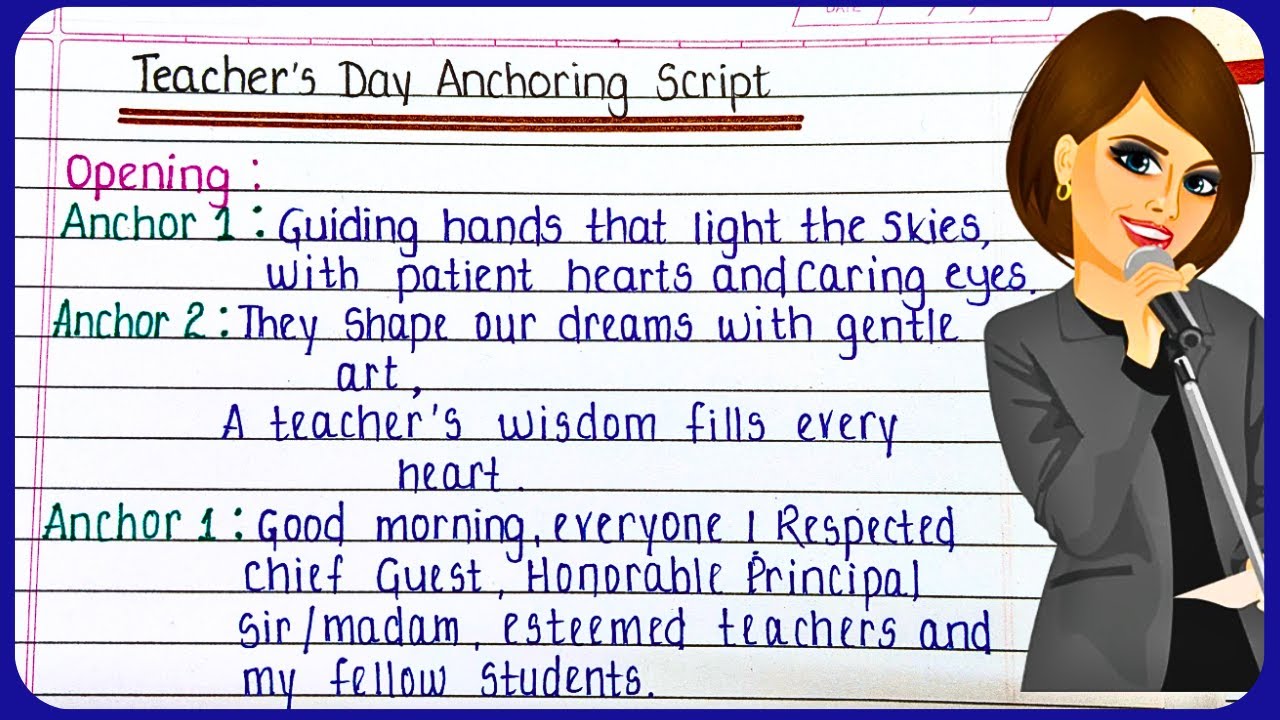 DATE
Teacher's Day Anchoring Script
Opening :
Anchor 1 : Guiding hands that light the skies,
with patient hearts and caring eyes.
Anchor 2 : They shape our dreams with gentle
art,
A teacher's wisdom fills every
heart.
Anchor 1 : Good morning, everyone ! Respected
Chief Guest, Honorable Principal
sir/madam, esteemed teachers and
my fellow students.